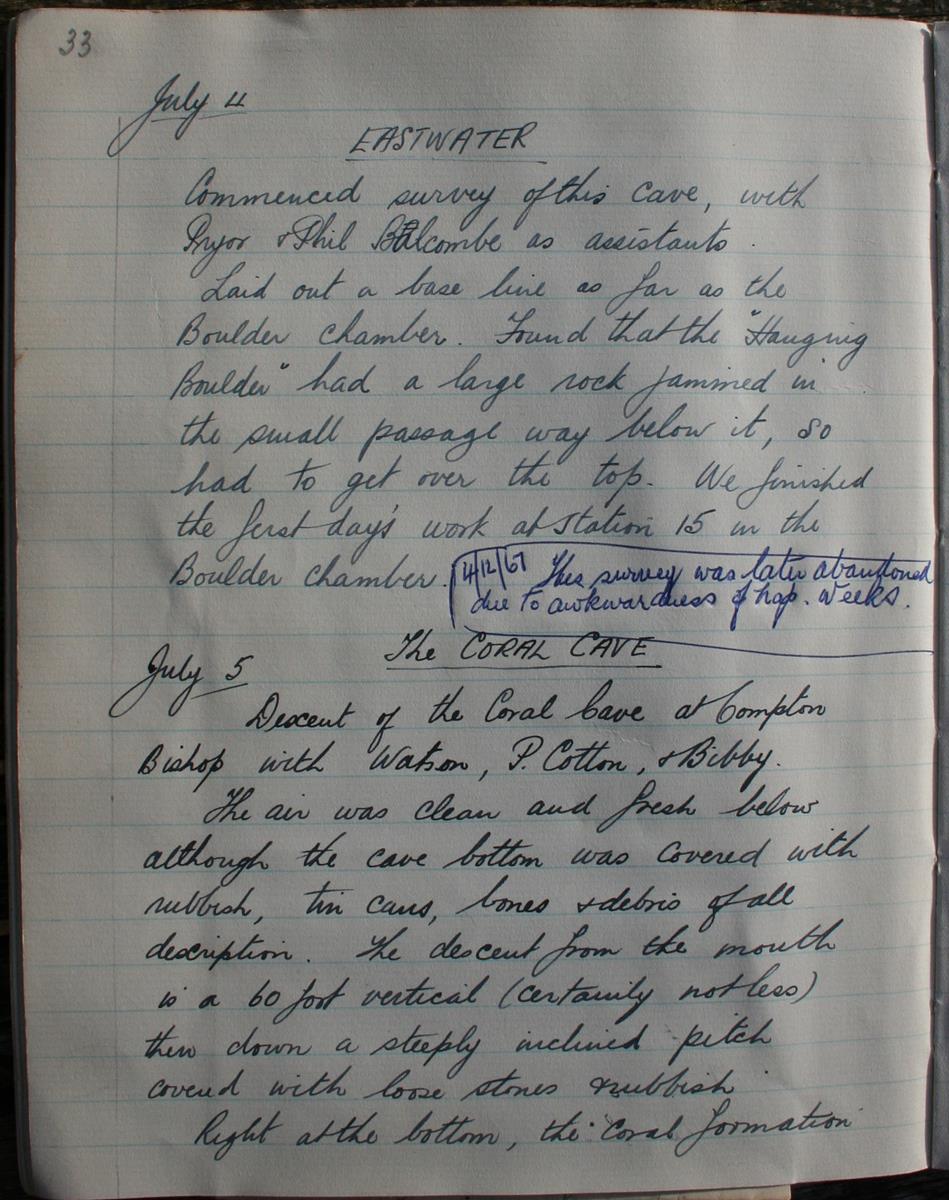 33
July 4
EASTWATER
Commenced survey of this cave, with
Pryor & Phil Balcombe as assistants.
Laid out a base line as far as the
Boulder chamber. Found that the "Hanging
Boulder" had a large rock jammed in
the small passage way below it, so
had to get over the top. We finished
the first day's work at Station 15 in the
Boulder chamber.
4/12/67 This survey was later abandoned
due to awkwardness of hap. weeks.
The CORAL CAVE
July 5
Descent of the Coral Cave at Compton
Bishop with Watson, P. Cotton, & Bibby.
The air was clean and fresh below
although the cave bottom was covered with
rubbish, tin cans, bones & debris of all
description. The descent from the mouth
is a 60 foot vertical (certainly not less)
then down a steeply inclined pitch
covered with loose stones & rubbish
Right at the bottom, the coral formation